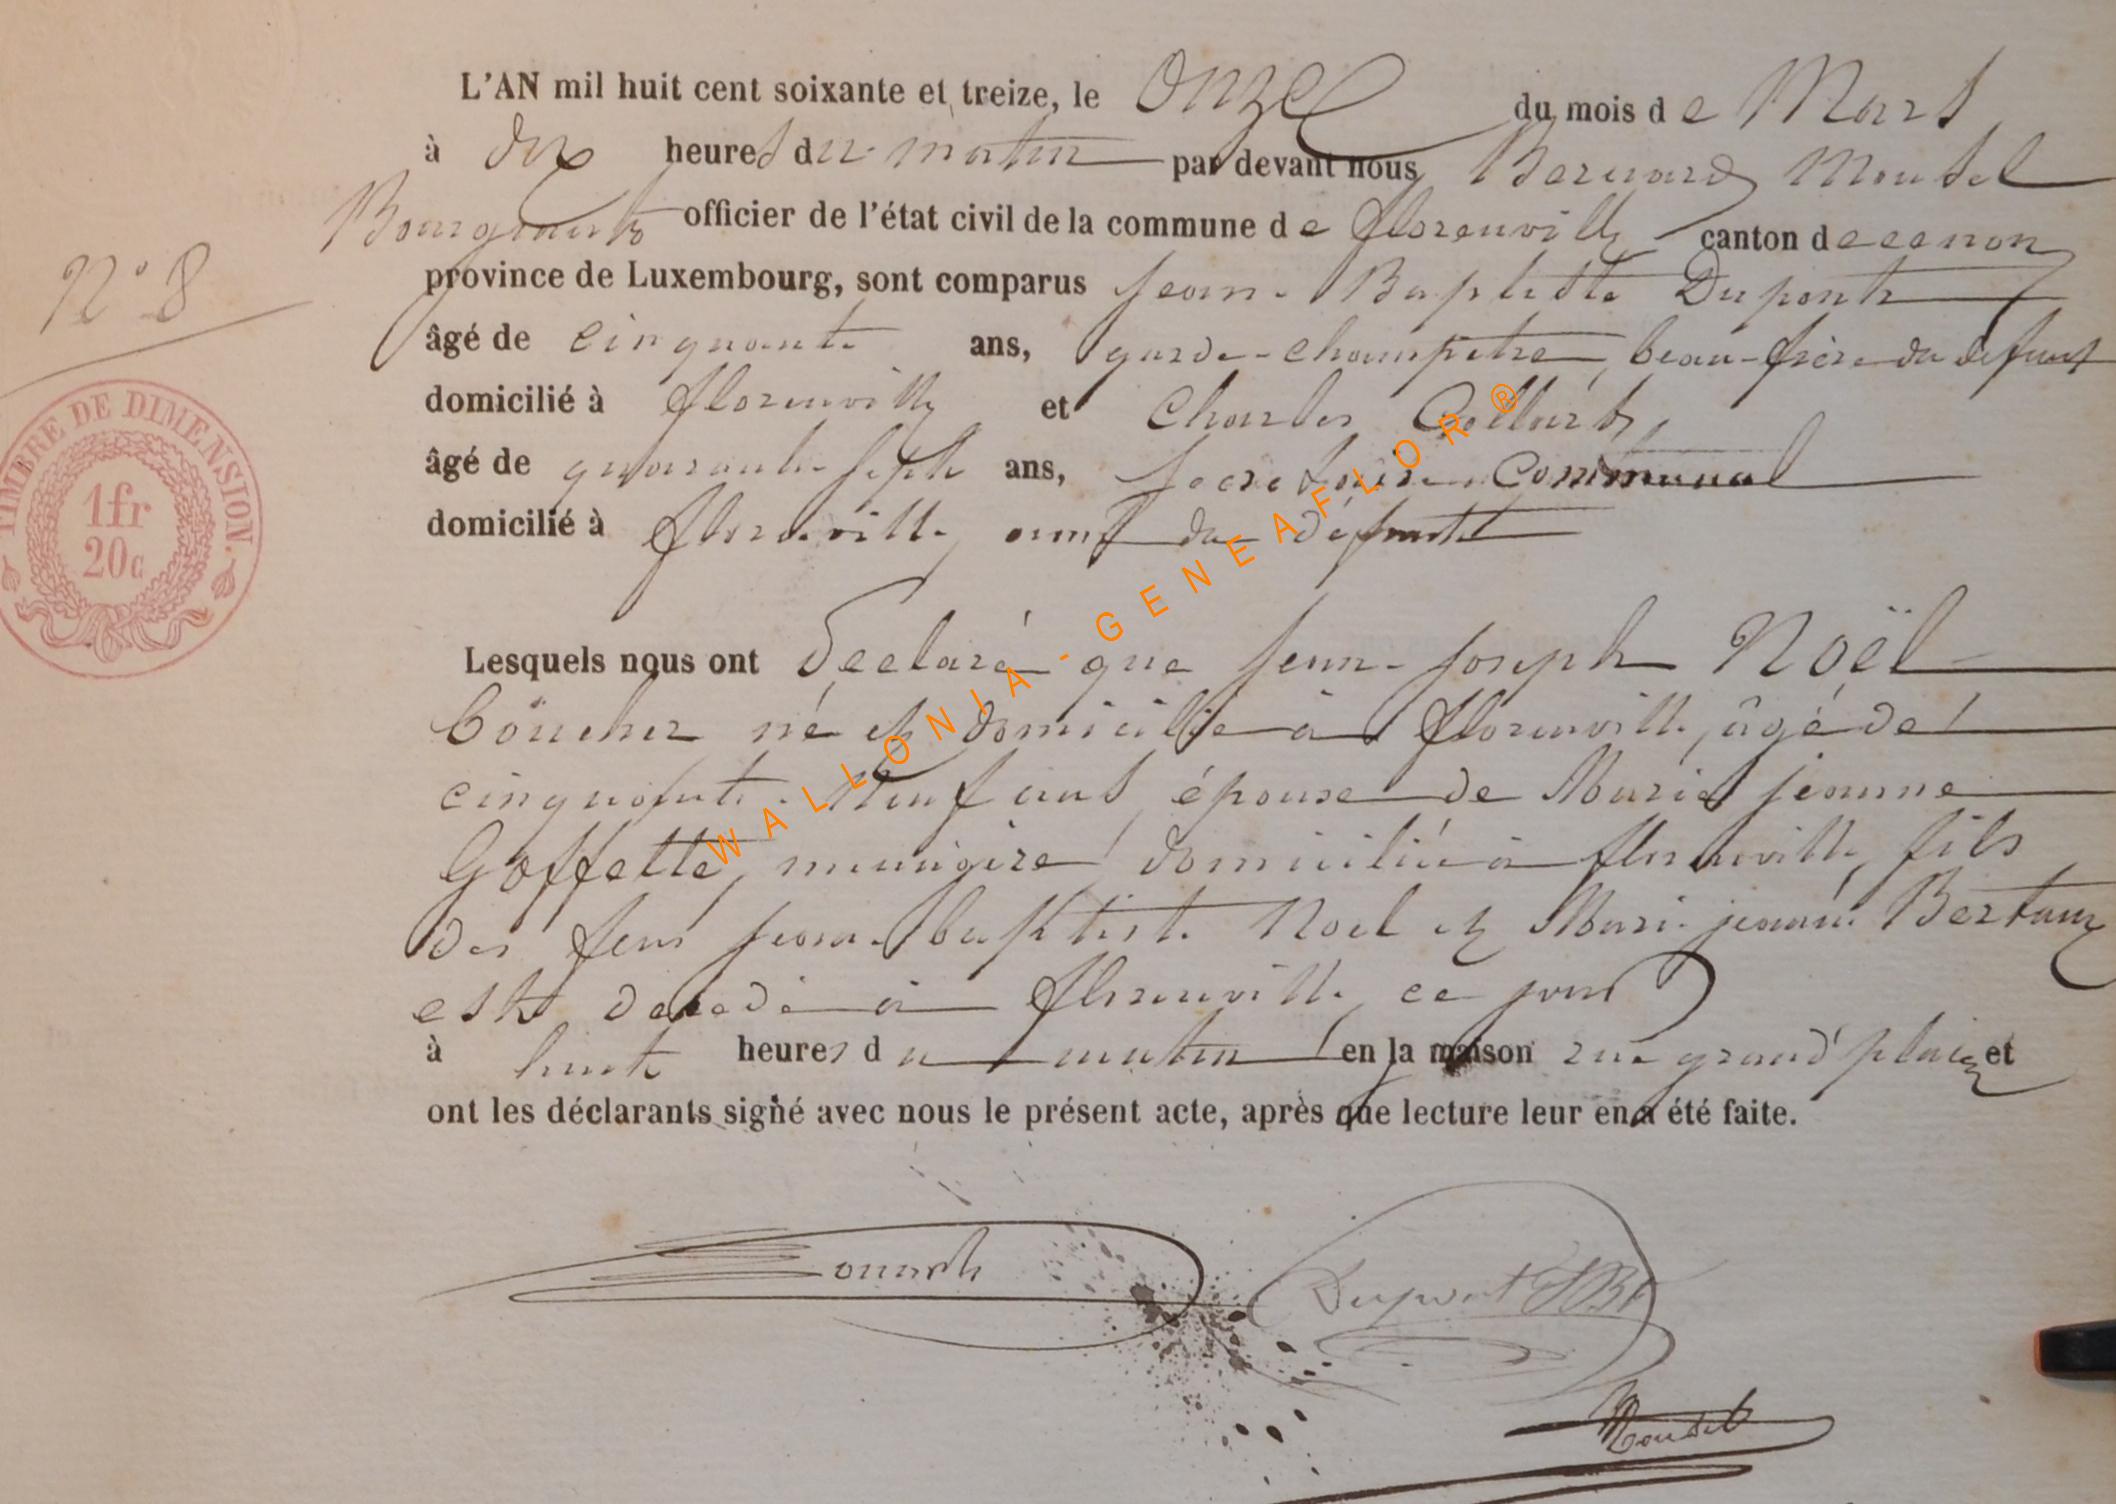 L'AN mil huit cent soixante et treize, le Onze du mois de Mars
à dix heures du matin par devant nous Bernard Moudel
Bourgmestre officier de l'état civil de la commune de florenville canton de
province de Luxembourg, sont comparus Jean-Baptiste Dupont
N° 8
âgé de cinquante ans, garde-champêtre, beau-frère du défunt
domicilié à florenville et Charles Collard,
âgé de quarante sept ans, Secretaire Communal
domicilié à florenville, ami du défunt
TIMBRE DE DIMENSION.
1fr
20c
Lesquels nous ont déclaré que Jean-Joseph Noël
né et domicilié à florenville, âgé de
cinquante-neuf ans, époux de Marie jeanne
Goffette, menagère domiciliée à florenville, fils
des feus jean-baptiste Noel et Marie jeanne Bertaux
est décédé à florenville ce jour
à huit heures du matin en la maison rue grand'place et
ont les déclarants signé avec nous le présent acte, après que lecture leur en a été faite.
Dupont JBt
Moudel
WALLONIA-GENEAFLOR®